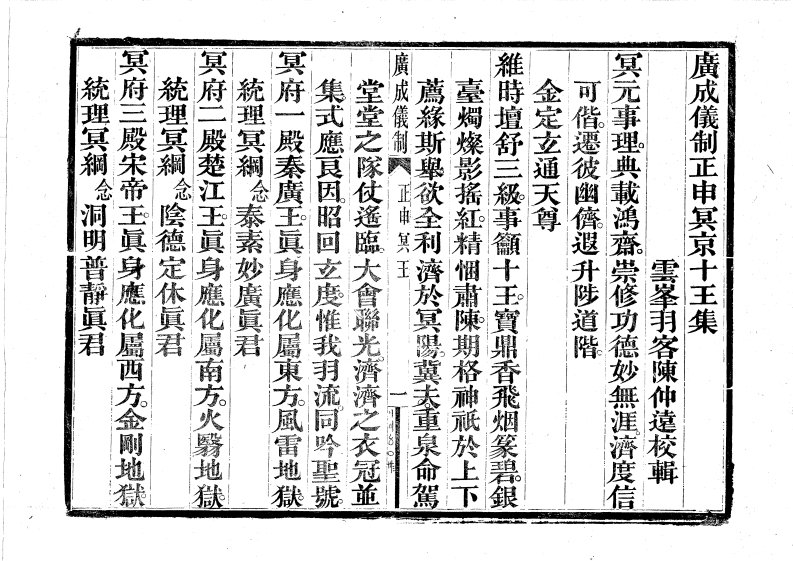 廣成儀制正申冥京十王集
雲峯羽客陳仲遠校輯
冥元事理。典載鴻齋。崇修功德妙無涯。濟度信
可偕。遷彼幽儕。遐升陟道階。
金定玄通天尊
維時壇舒三級。事籲十王。寶鼎香飛烟篆碧。銀
臺燭燦影搖紅。精悃肅陳。期格神祇於上下
薦緣斯舉。欲全利濟於冥陽。冀夫重泉命駕
廣成儀制 正申冥王 一
堂堂之隊仗遙臨。大會聯光。濟濟之衣冠並
集。式應良因。昭回玄度。惟我羽流。同吟聖號。
冥府一殿秦廣王。眞身應化屬東方。風雷地獄
統理冥綱念泰素妙廣眞君
冥府二殿楚江王。眞身應化屬南方。火翳地獄。
統理冥綱念陰德定休眞君
冥府三殿宋帝王。眞身應化屬西方。金剛地獄。
統理冥綱念洞明普靜眞君